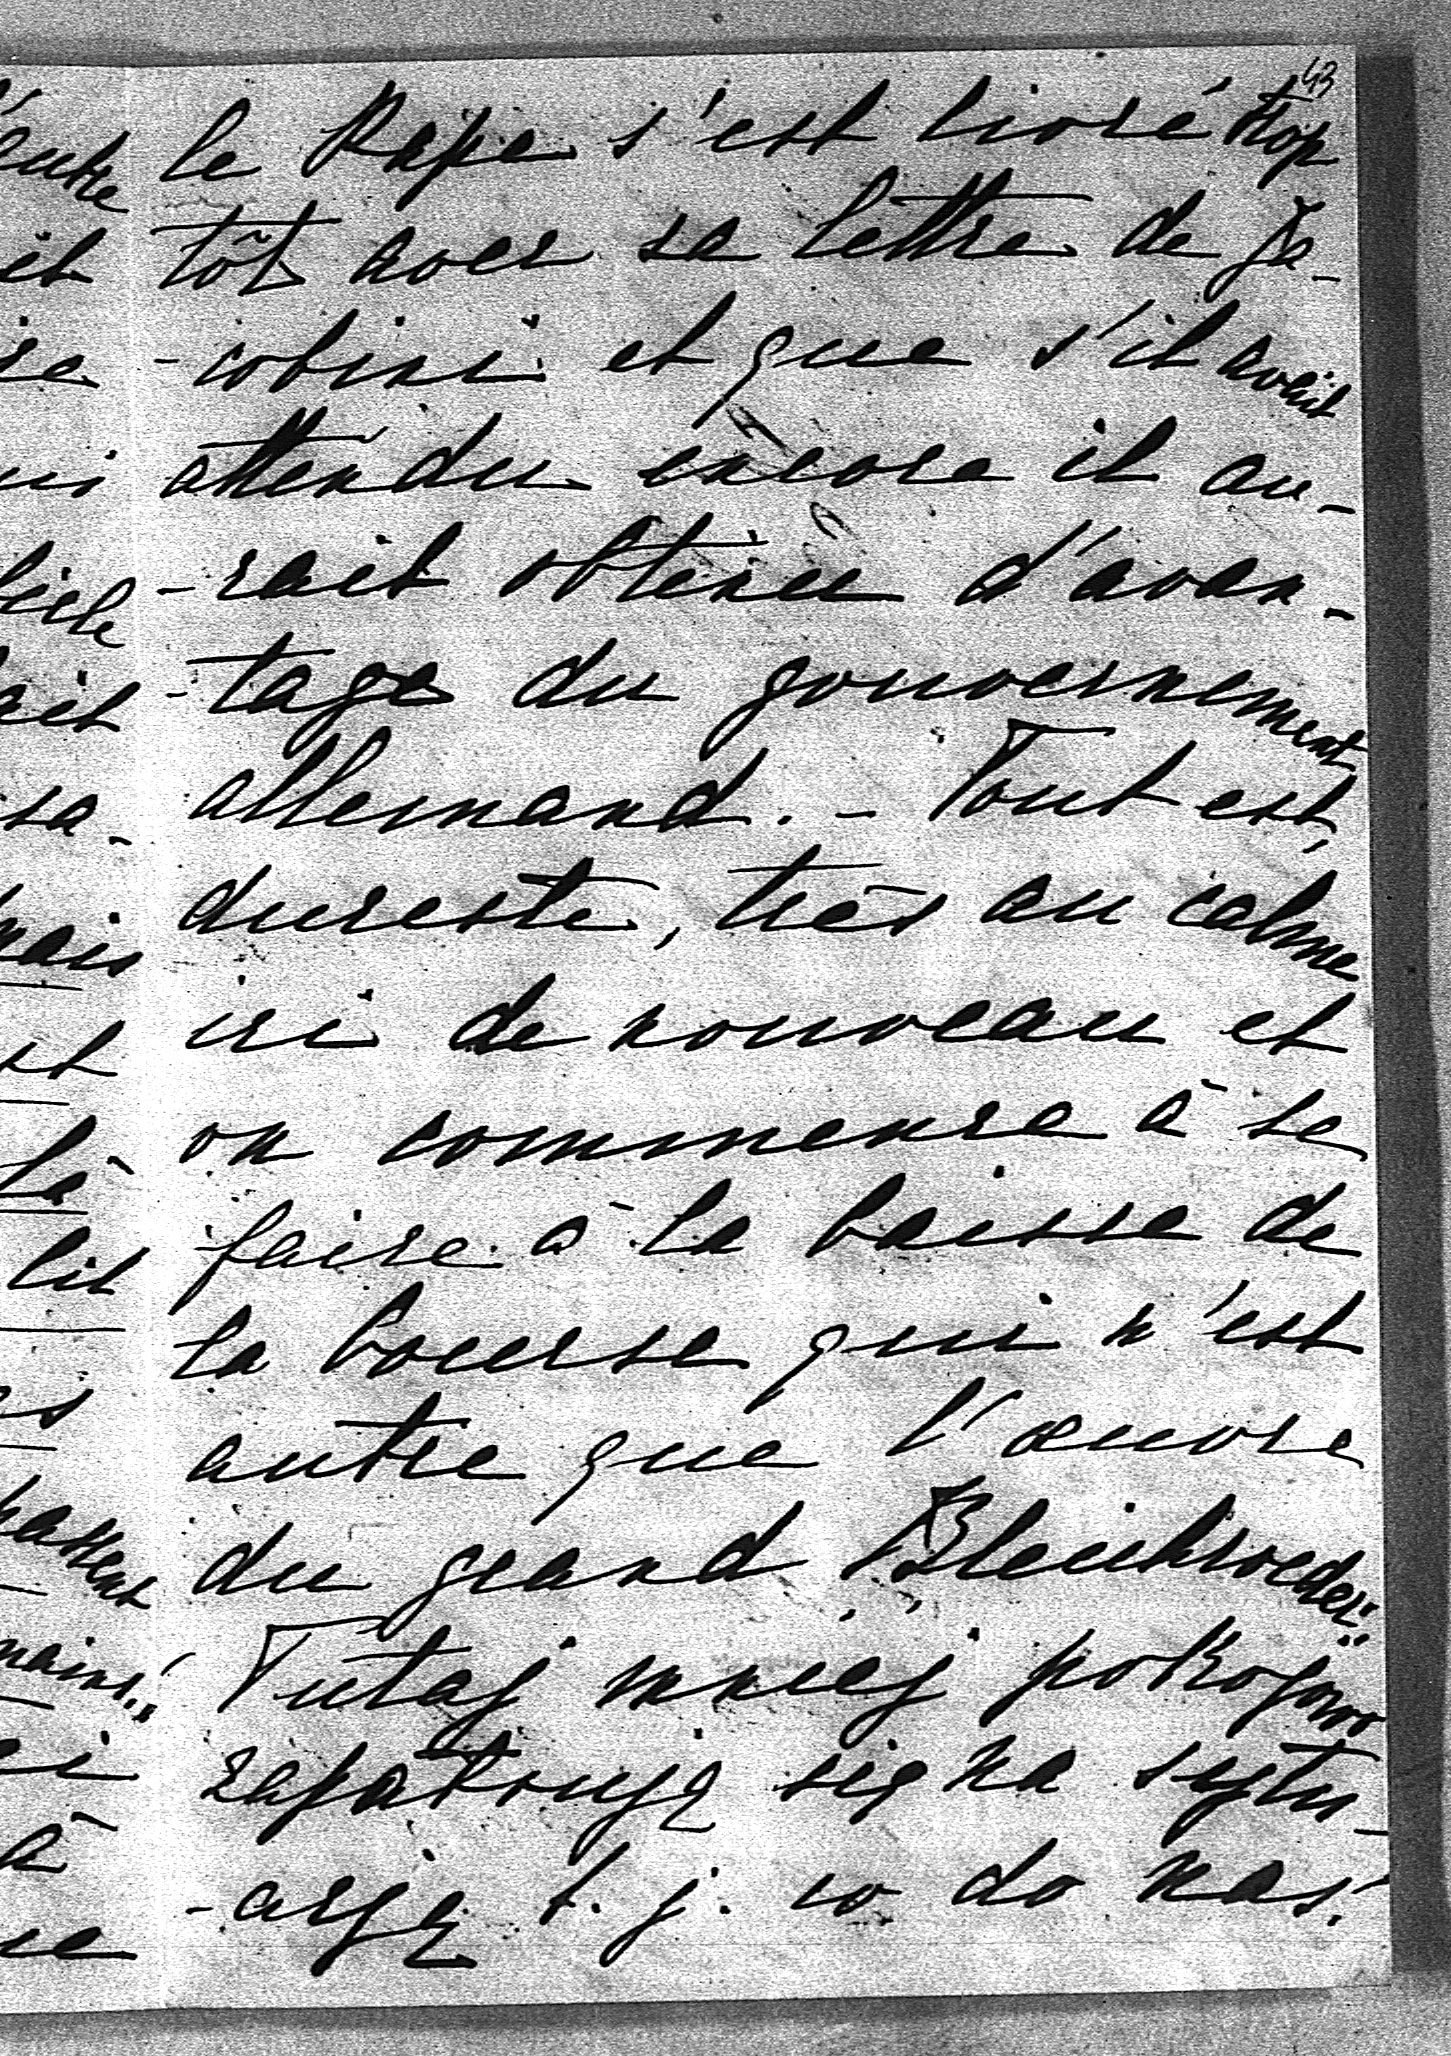 43
le Pape s'est livré trop
tôt avec sa lettre de Ja-
-cobini et que s'il avait
attendu encore il au-
-rait obtenu d'avan-
-tage du gouvernement
allemand. - Tout est,
dureste, très au calme
ici de nouveau et
on commence à se
faire à la baisse de
la bourse qui n'est
autre que l'œuvre
du grand Bleichroeder!!
Tutaj mniej pokojowo
zapatrują się na sytu-
-acją t. j. co do nas!
ait
mais
là
lit
mains!!
à